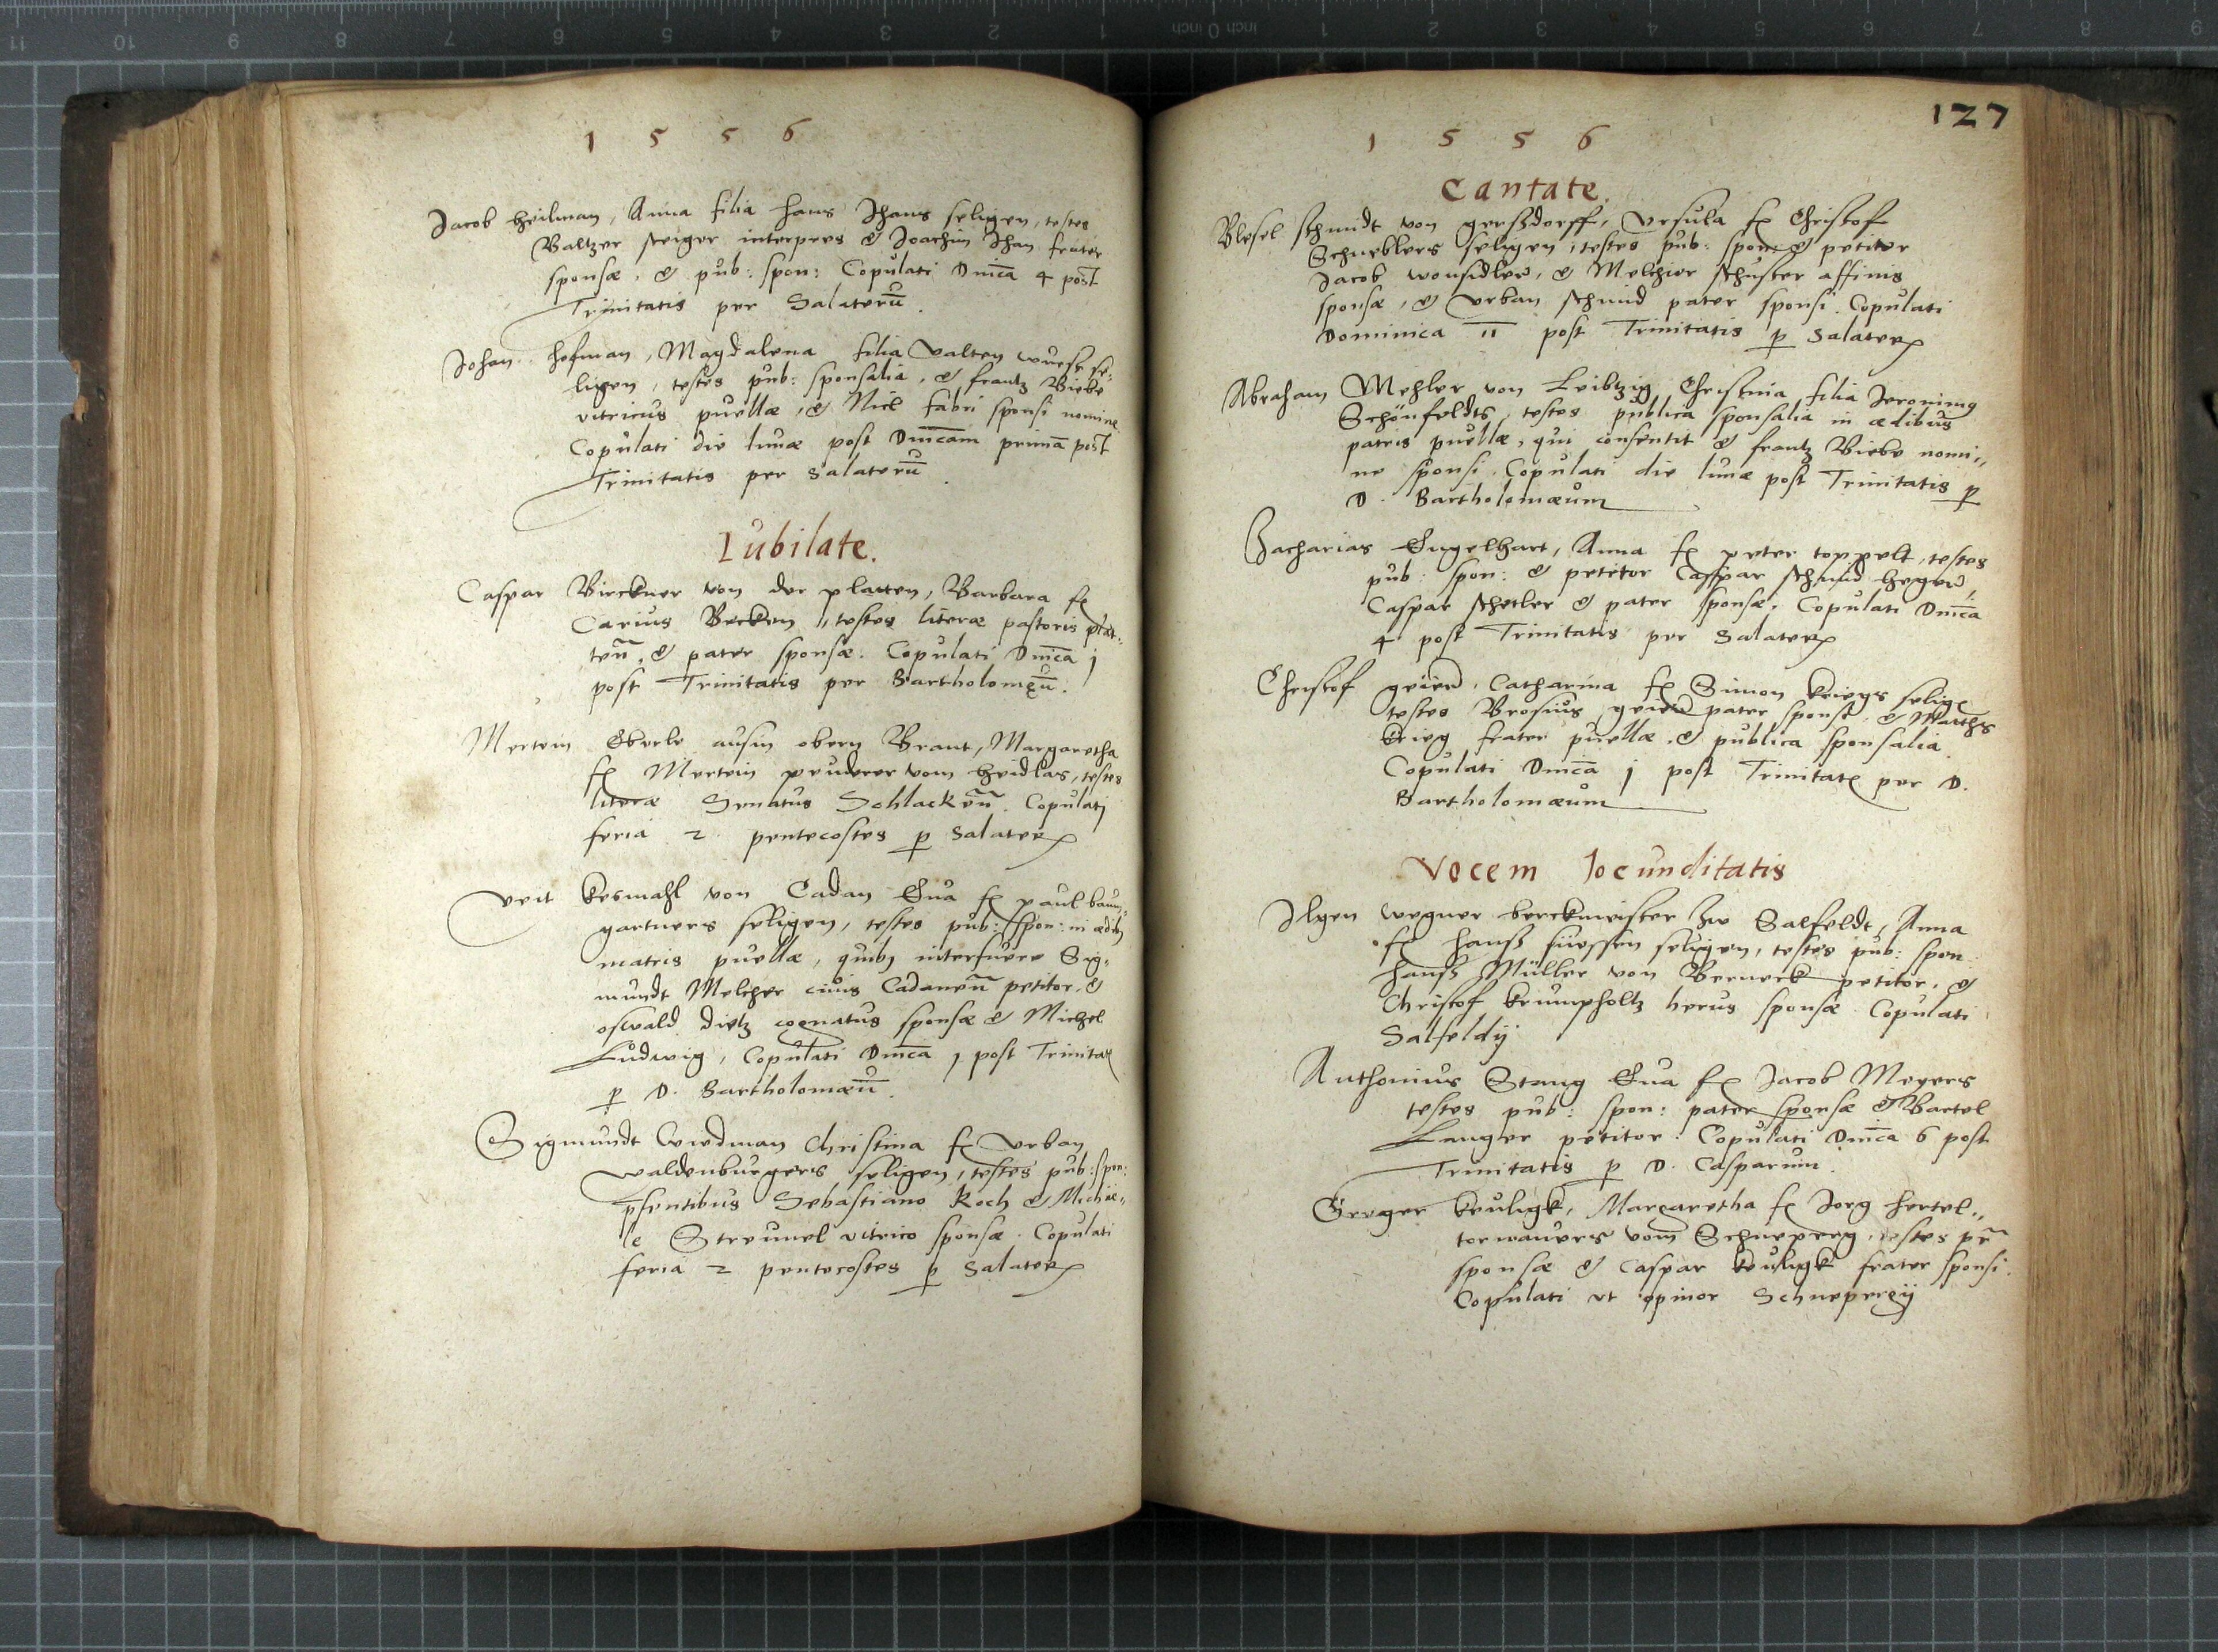 1 5 5 6
Jacob Heilman, Anna filia Hans Jhans seligen, testes
Baltzer steiger interpres & Joachim Jhan frater
sponsæ, & pub: spon: Copulati Dnica 4 post
Trinitatis per Salaterū.
Johan hofman, Magdalena filia Valten se-
ligen, testes pub: sponsalia, & frantz Biebe
vitricus puellæ, & Nicl fabri sponsi nomine
Copulati die lunæ post Dnicam primā post
Trinitatis per Salaterū.
Iubilate.
Caspar Birckner von der platten, Barbara f
Carius Becken, testes literæ pastoris plat-
teñ, & pater sponsæ. Copulati Dnica j
post Trinitatis per Bartholomęū.
Mertein Eberle ausm obern Brant, Margaretha
f Mertein peuderer vom heidlas, testes
literæ Senatus Schlackeñ. Copulatj
feria 2 pentecostes p Salater
Veit kesmahl von Cadan Eua f paul baum-
gartners seligen, testes pub: spon: in ædib
matris puellæ, quib interfuere Sig-
mundt Melcher ciuis Cadaneñ petitor, &
oswald dietz cognatus sponsæ & Michel
Ludwig, Copulati Dnica j post Trinitat
p D. Bartholomæū.
Sigmundt Widman Christina f Urban
waldenburgers seligen, testes pub: spon:
psentibus Sebastiano Koch & Michæ-
le Streunel vitrico sponsæ. Copulati
feria 2 pentecostes p Salater
127
1 5 5 6
Cantate.
Blesel schmidt von gerssdorff, Ursula f Christof
Schueblers seligen, testes pub: spon: & petitor
Jacob wonsidler, & Melchior schuster affinis
sponsæ, & Urban schmid pater sponsi. Copulati
Dominica 11 post Trinitatis p Salater
Abraham Mehler von Leibtzig Christina filia Jeronimg
Schönfeldts, testes publica sponsalia in ædibus
patris puellæ, qui consentit & frantz Biebe nomi-
ne sponsi. Copulati die lunæ post Trinitatis p
D. Bartholomæum
Zacharias Engelhart, Anna f peter toppelt, testes
pub: spon: & petitor Caspar schmid heger,
Caspar schetler & pater sponsæ. Copulati Dnica
4 post Trinitatis per Salater
Christof geier, Catharina f Simon kriegs selige
testes Brosius geier pater sponsi, & Mathes
krieg frater puellæ, & publica sponsalia.
Copulati Dnica j post Trinitat per D.
Bartholomæum
Vocem Jocunditatis
Ilgen wegner berckmeister zw Salfeldt, Anna
f hanss füessen seligen, testes pub: spon
hanss Müller von Berneck petitor, &
Christof krumpholtz herus sponsæ Copulati
Salfeldij
Anthonius Stang Eua f Jacob Meyers
testes pub: spon: pater sponsæ & Bartel
Langer petitor. Copulati Dnica 6 post
Trinitatis p D. Casparum.
Greger keuligk, Margaretha f Jorg hertel
torwauers vom Schneperg, testes pr
sponsæ & Caspar keuligk frater sponsi.
Copulati ut opinor Schnepergij